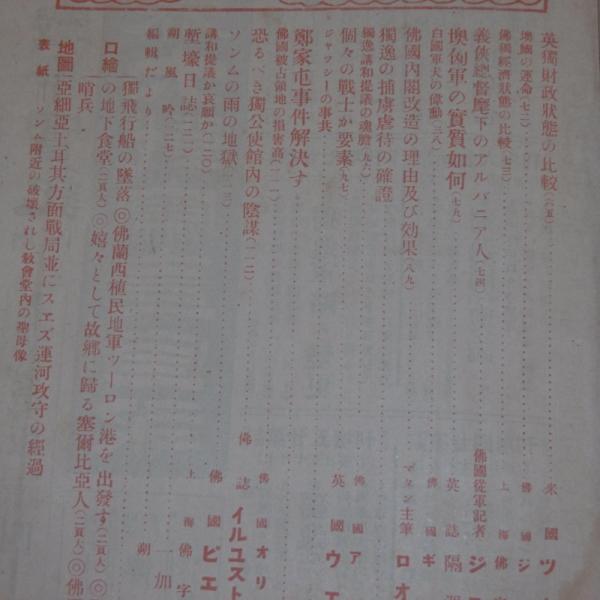 英獨財政狀態の比較(六五)‥‥米國ツ
墺匈の運命(七二)‥‥佛國ジ
佛獨經濟狀態の比較(七三)‥‥上海佛字
義俠總督麾下のアルバニア人(七四)‥‥佛國從軍記者ジ
墺匈軍の實質如何(七九)‥‥英誌隔週
白國軍犬の偉勳(八八)‥‥佛國ギ
佛國內閣改造の理由及び效果(八九)‥‥マタン主筆ロオ
獨逸の捕虜虐待の確證
獨逸講和提議の魂膽(九六)‥‥佛國ア
個々の戰士が要素(九七)‥‥英國ウエ
ジャフシーの事共
鄭家屯事件解決す
佛國被占領地の損害高(一一一)‥‥佛國オリ
恐るべき獨公使館內の陰謀(一一二)‥‥佛誌イルユスト
ソンムの雨の地獄
講和提議か哀願か(一二〇)‥‥佛國ピエ
塹壕日誌(一二一)‥‥上海佛字
朔風吟(一二七)‥‥一加
編輯だより‥‥朔
口繪 獨飛行船の墜落◎佛蘭西植民地軍ツーロン港を出發す(二頁入)◎
の地下食堂(二頁入)◎嬉々として故鄕に歸る塞爾比亞人(二頁入)◎佛
哨兵
地圖 亞細亞土耳其方面戰局並にスエズ運河攻守の經過
表紙 ソンム附近の破壞されし敎會堂內の聖母像